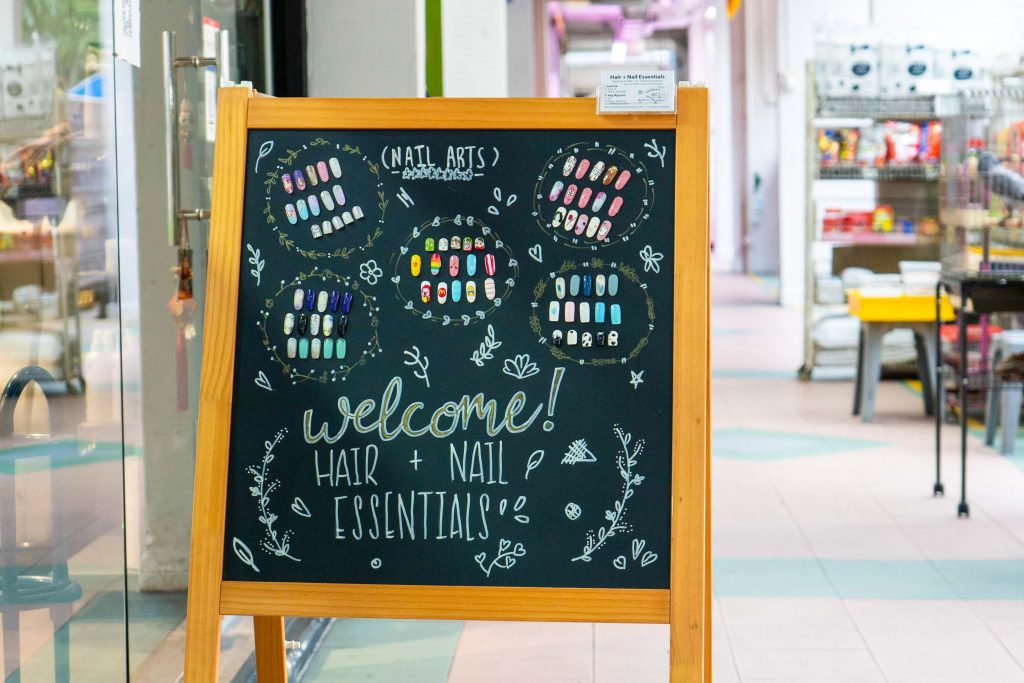 Hair + Nail Essentials
(NAIL ARTS)
welcome!
HAIR + NAIL
ESSENTIALS